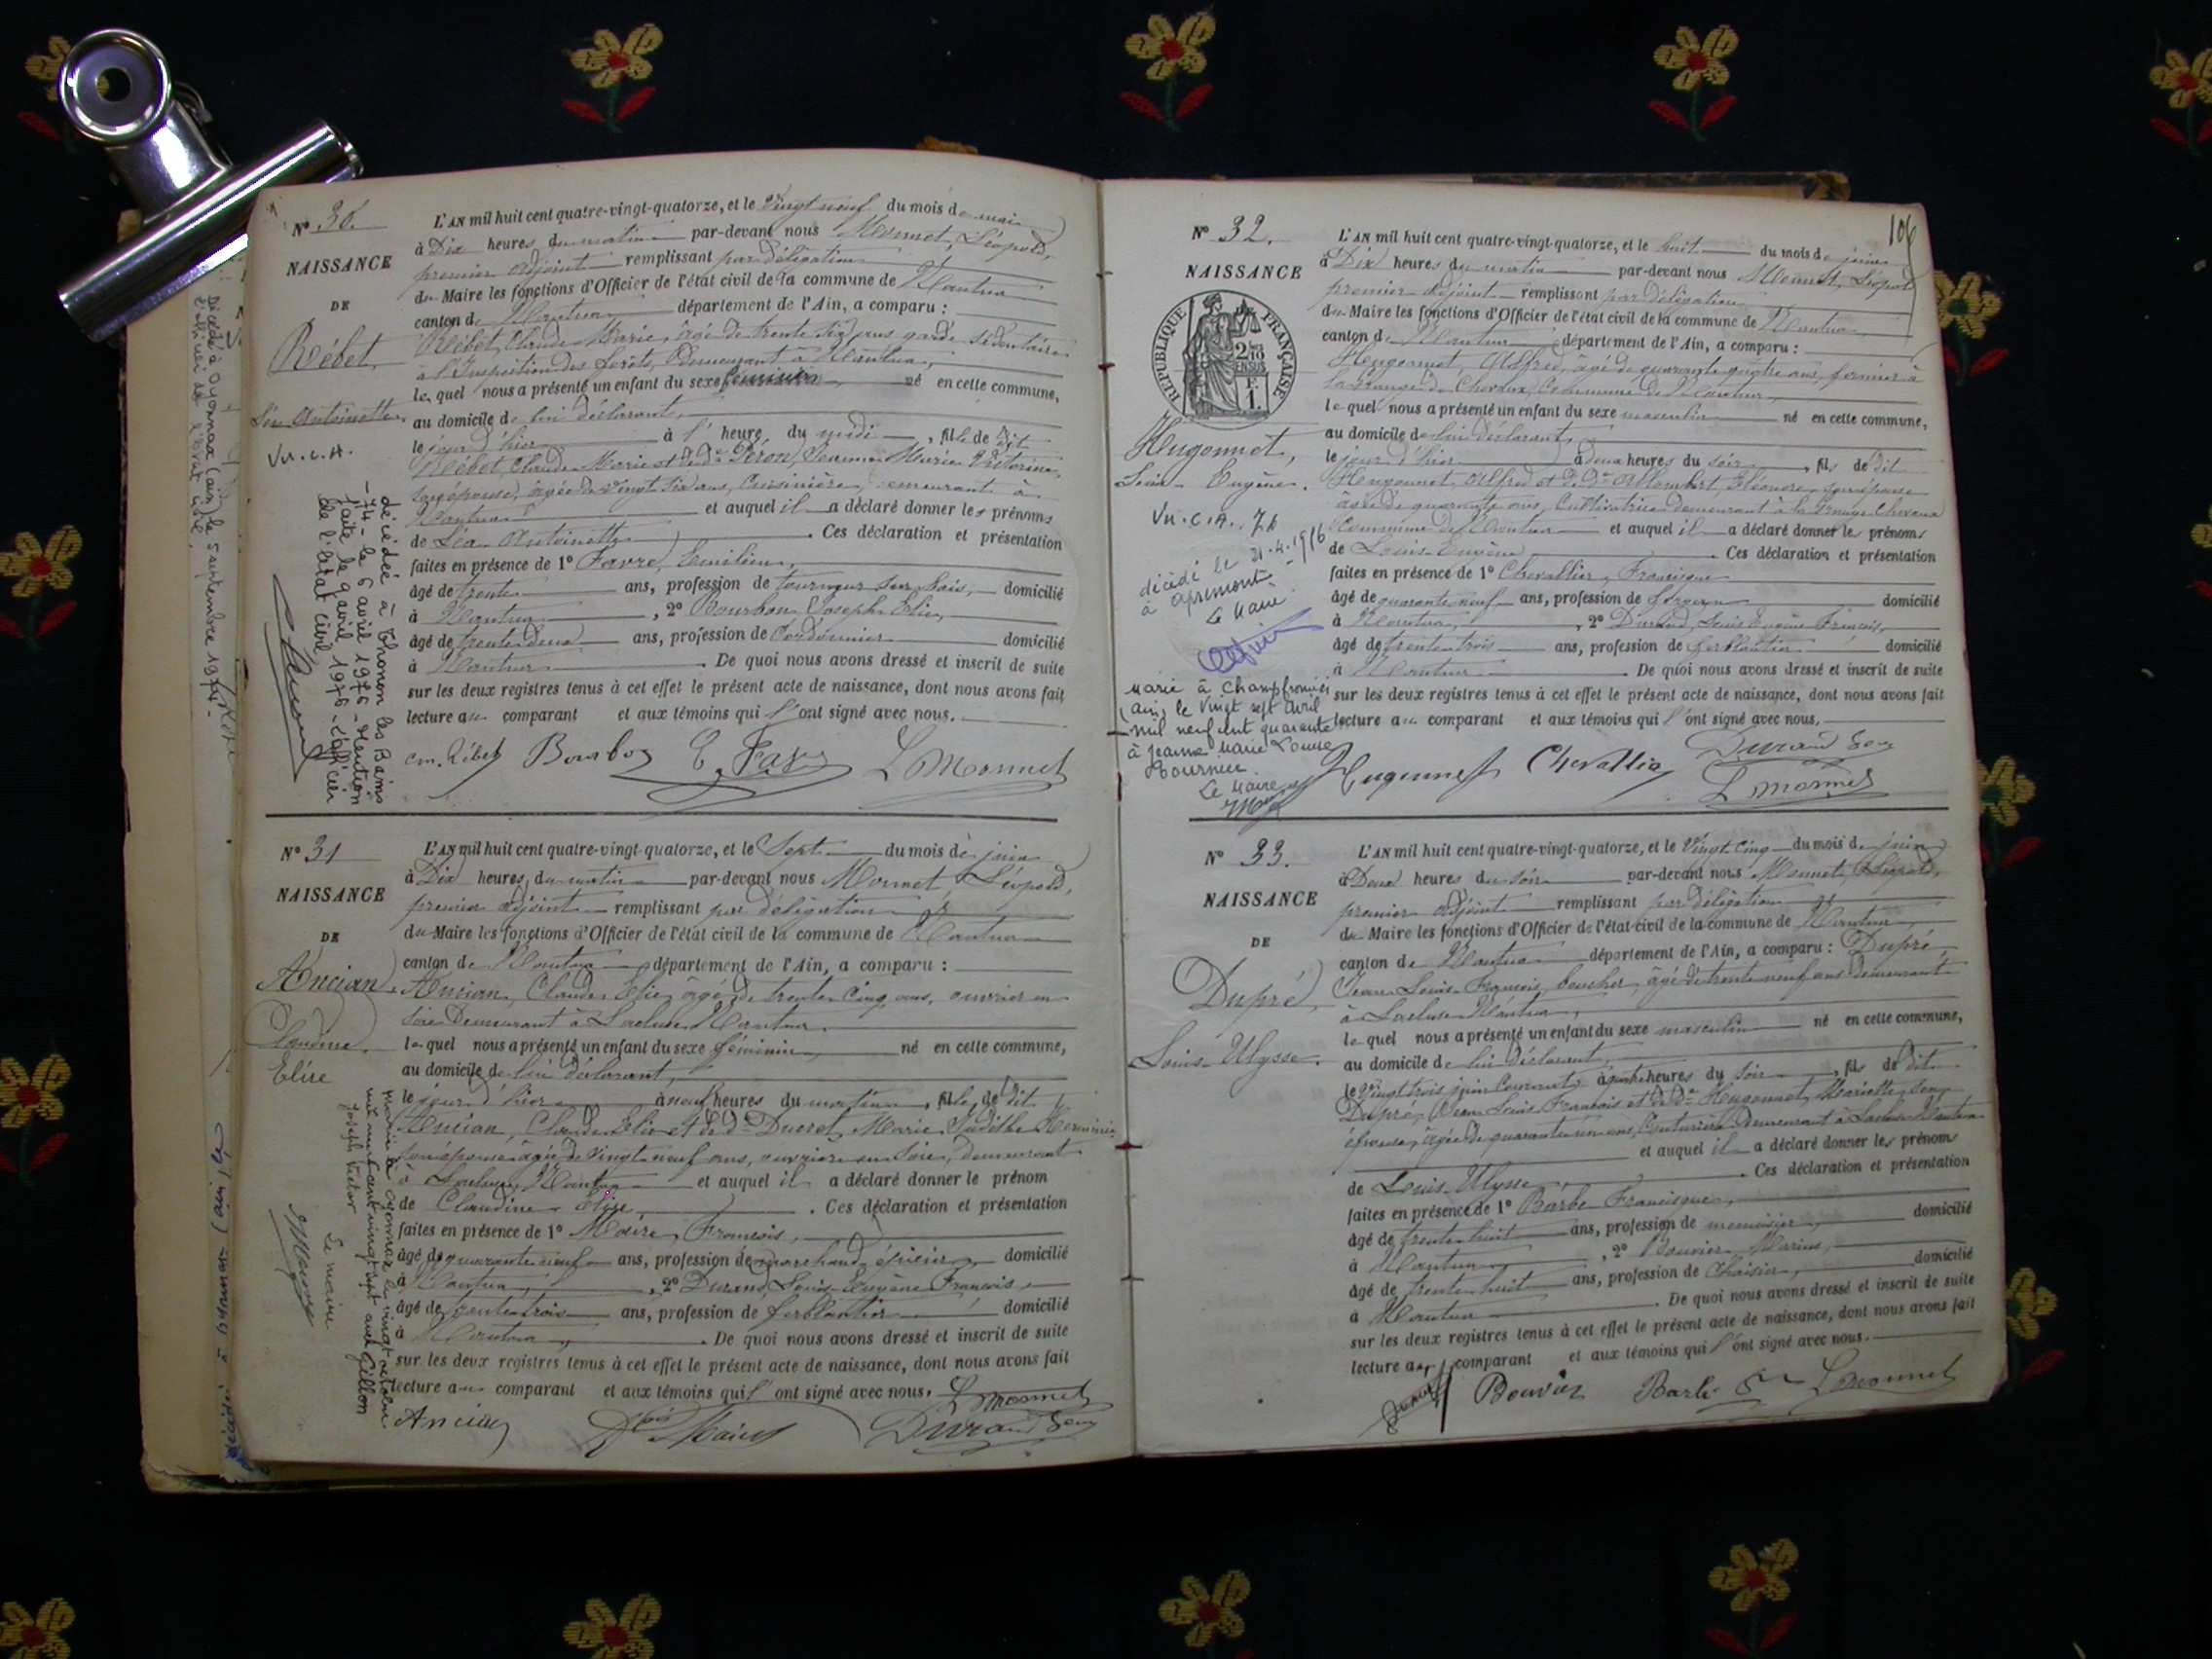 N° 30.
L'AN mil huit cent quatre-vingt-quatorze, et le Vingt neuf du mois de mai
à Dix heures du matin par-devant nous Monnet, Léopold,
premier adjoint remplissant par délégation
du Maire les fonctions d'Officier de l'état civil de la commune de Nantua
canton de Nantua département de l'Ain, a comparu :
NAISSANCE
DE
Rébet
Léa Antoinette
Vu. C. A.
Rébet, Claude Marie, âgé de trente six ans garde sédentaire
à l'Inspection des forêts, Demeurant à Nantua,
lequel nous a présenté un enfant du sexe féminin né en cette commune,
au domicile de lui déclarant,
le jour d'hier à l' heure du midi , fille de dit
Rébet, Claude Marie et de de Péron, Jeanne Marie Victorine,
son épouse, âgée de vingt six ans, Cuisinière, demeurant à
Nantua et auquel il a déclaré donner les prénoms
de Léa Antoinette . Ces déclaration et présentation
faites en présence de 1° Favre, Emilien,
âgé de trente ans, profession de tourneur sur bois, domicilié
à Nantua , 2° Bourbon Joseph Elie,
âgé de trente deux ans, profession de Cordonnier domicilié
à Nantua . De quoi nous avons dressé et inscrit de suite
sur les deux registres tenus à cet effet le présent acte de naissance, dont nous avons fait
lecture au comparant et aux témoins qui l'ont signé avec nous.
décédée à Thonon les Bains
-74- le 6 avril 1976 - Mention
faite le 9 avril 1976 - L'officier
de l'état civil
cm. Rébet Bourbon E. Favre L Monnet
N° 31
L'AN mil huit cent quatre-vingt-quatorze, et le Sept du mois de juin
à Dix heures du matin par-devant nous Monnet, Léopold,
premier adjoint remplissant par délégation
du Maire les fonctions d'Officier de l'état civil de la commune de Nantua
canton de Nantua département de l'Ain, a comparu :
NAISSANCE
DE
Ancian,
Claudine
Elise
Ancian, Claude Elie, âgé de trente cinq ans, ouvrier en
soie Demeurant à Lacluse Nantua
lequel nous a présenté un enfant du sexe féminin né en cette commune,
au domicile de lui déclarant,
le jour d'hier à neuf heures du matin , fille de dit
Ancian, Claude Elie et de de Ducret, Marie Judith Herminie
son épouse âgée de vingt neuf ans, ouvrière en soie, demeurant
à Lacluse, Nantua et auquel il a déclaré donner le prénom
de Claudine Elise, . Ces déclaration et présentation
faites en présence de 1° Maire, François,
âgé de quarante neuf ans, profession de marchand épicier, domicilié
à Nantua , 2° Durand, Louis Eugène François,
âgé de trente trois ans, profession de ferblantier domicilié
à Nantua . De quoi nous avons dressé et inscrit de suite
sur les deux registres tenus à cet effet le présent acte de naissance, dont nous avons fait
lecture au comparant et aux témoins qui l'ont signé avec nous.
Mariée à Oyonnax le vingt octobre
mil neuf cent vingt sept avec Gillon
Joseph Victor
Le maire
L Monnet
Ancian Maire Durand Eug
Décédé à Oyonnax (Ain) le 5 septembre 1974 -
L'officier de l'état civil,
106
N° 32.
L'AN mil huit cent quatre-vingt-quatorze, et le huit du mois de juin
à Dix heures du matin par-devant nous Monnet, Léopold
premier adjoint remplissant par délégation
du Maire les fonctions d'Officier de l'état civil de la commune de Nantua
canton de Nantua département de l'Ain, a comparu :
NAISSANCE
RÉPUBLIQUE FRANÇAISE
2/10 EN SUS
Hugonnet,
Louis Eugène.
Vu. C. A.
Hugonnet, Alfred, âgé de quarante quatre ans, fermier à
la Grange de Chevaux, Commune de Nantua,
lequel nous a présenté un enfant du sexe masculin né en cette commune,
au domicile de lui déclarant,
le jour d'hier à deux heures du soir , fils de dit
Hugonnet, Alfred et de de Allombert, Eléonore, son épouse
âgée de quarante ans, Cultivatrice demeurant à la Grange Chevaux
Commune de Nantua et auquel il a déclaré donner les prénoms
de Louis Eugène . Ces déclaration et présentation
faites en présence de 1° Chevallier, Francisque
âgé de quarante neuf ans, profession de domicilié
à Nantua, , 2° Durand, Louis Eugène François,
âgé de trente trois ans, profession de ferblantier domicilié
à Nantua . De quoi nous avons dressé et inscrit de suite
sur les deux registres tenus à cet effet le présent acte de naissance, dont nous avons fait
lecture au comparant et aux témoins qui l'ont signé avec nous.
à Apremont
Le Maire
Marié à Champfromier
(Ain) le vingt sept avril
mil neuf cent quarante
à Jeanne Marie Louise
Tournier
Le Maire
Hugonnet Chevallier Durand Eug
L Monnet
N° 33.
L'AN mil huit cent quatre-vingt-quatorze, et le Vingt Cinq du mois de juin
à Deux heures du soir par-devant nous Monnet, Léopold,
premier adjoint remplissant par délégation
du Maire les fonctions d'Officier de l'état civil de la commune de Nantua
canton de Nantua département de l'Ain, a comparu : Dupré,
NAISSANCE
DE
Dupré,
Louis Ulysse.
Jean Louis François, boucher, âgé de trente neuf ans demeurant
à Lacluse Nantua,
lequel nous a présenté un enfant du sexe masculin né en cette commune,
au domicile de lui déclarant,
le Vingt trois juin Courant, à quatre heures du soir , fils de dit
Dupré, Jean Louis François et de de Hugonnet, Mariette, son
épouse, âgée de quarante un ans, Couturière Demeurant à Lacluse Nantua
et auquel il a déclaré donner les prénoms
de Louis Ulysse . Ces déclaration et présentation
faites en présence de 1° Barbe Francisque,
âgé de trente huit ans, profession de menuisier, domicilié
à Nantua , 2° Bouvier Marius,
âgé de trente huit ans, profession de Chaisier, domicilié
à Nantua . De quoi nous avons dressé et inscrit de suite
sur les deux registres tenus à cet effet le présent acte de naissance, dont nous avons fait
lecture au comparant et aux témoins qui l'ont signé avec nous.
Dupré Bouvier Barbe L Monnet